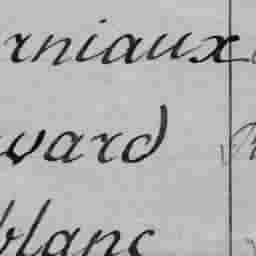 rniaux
vard
blanc